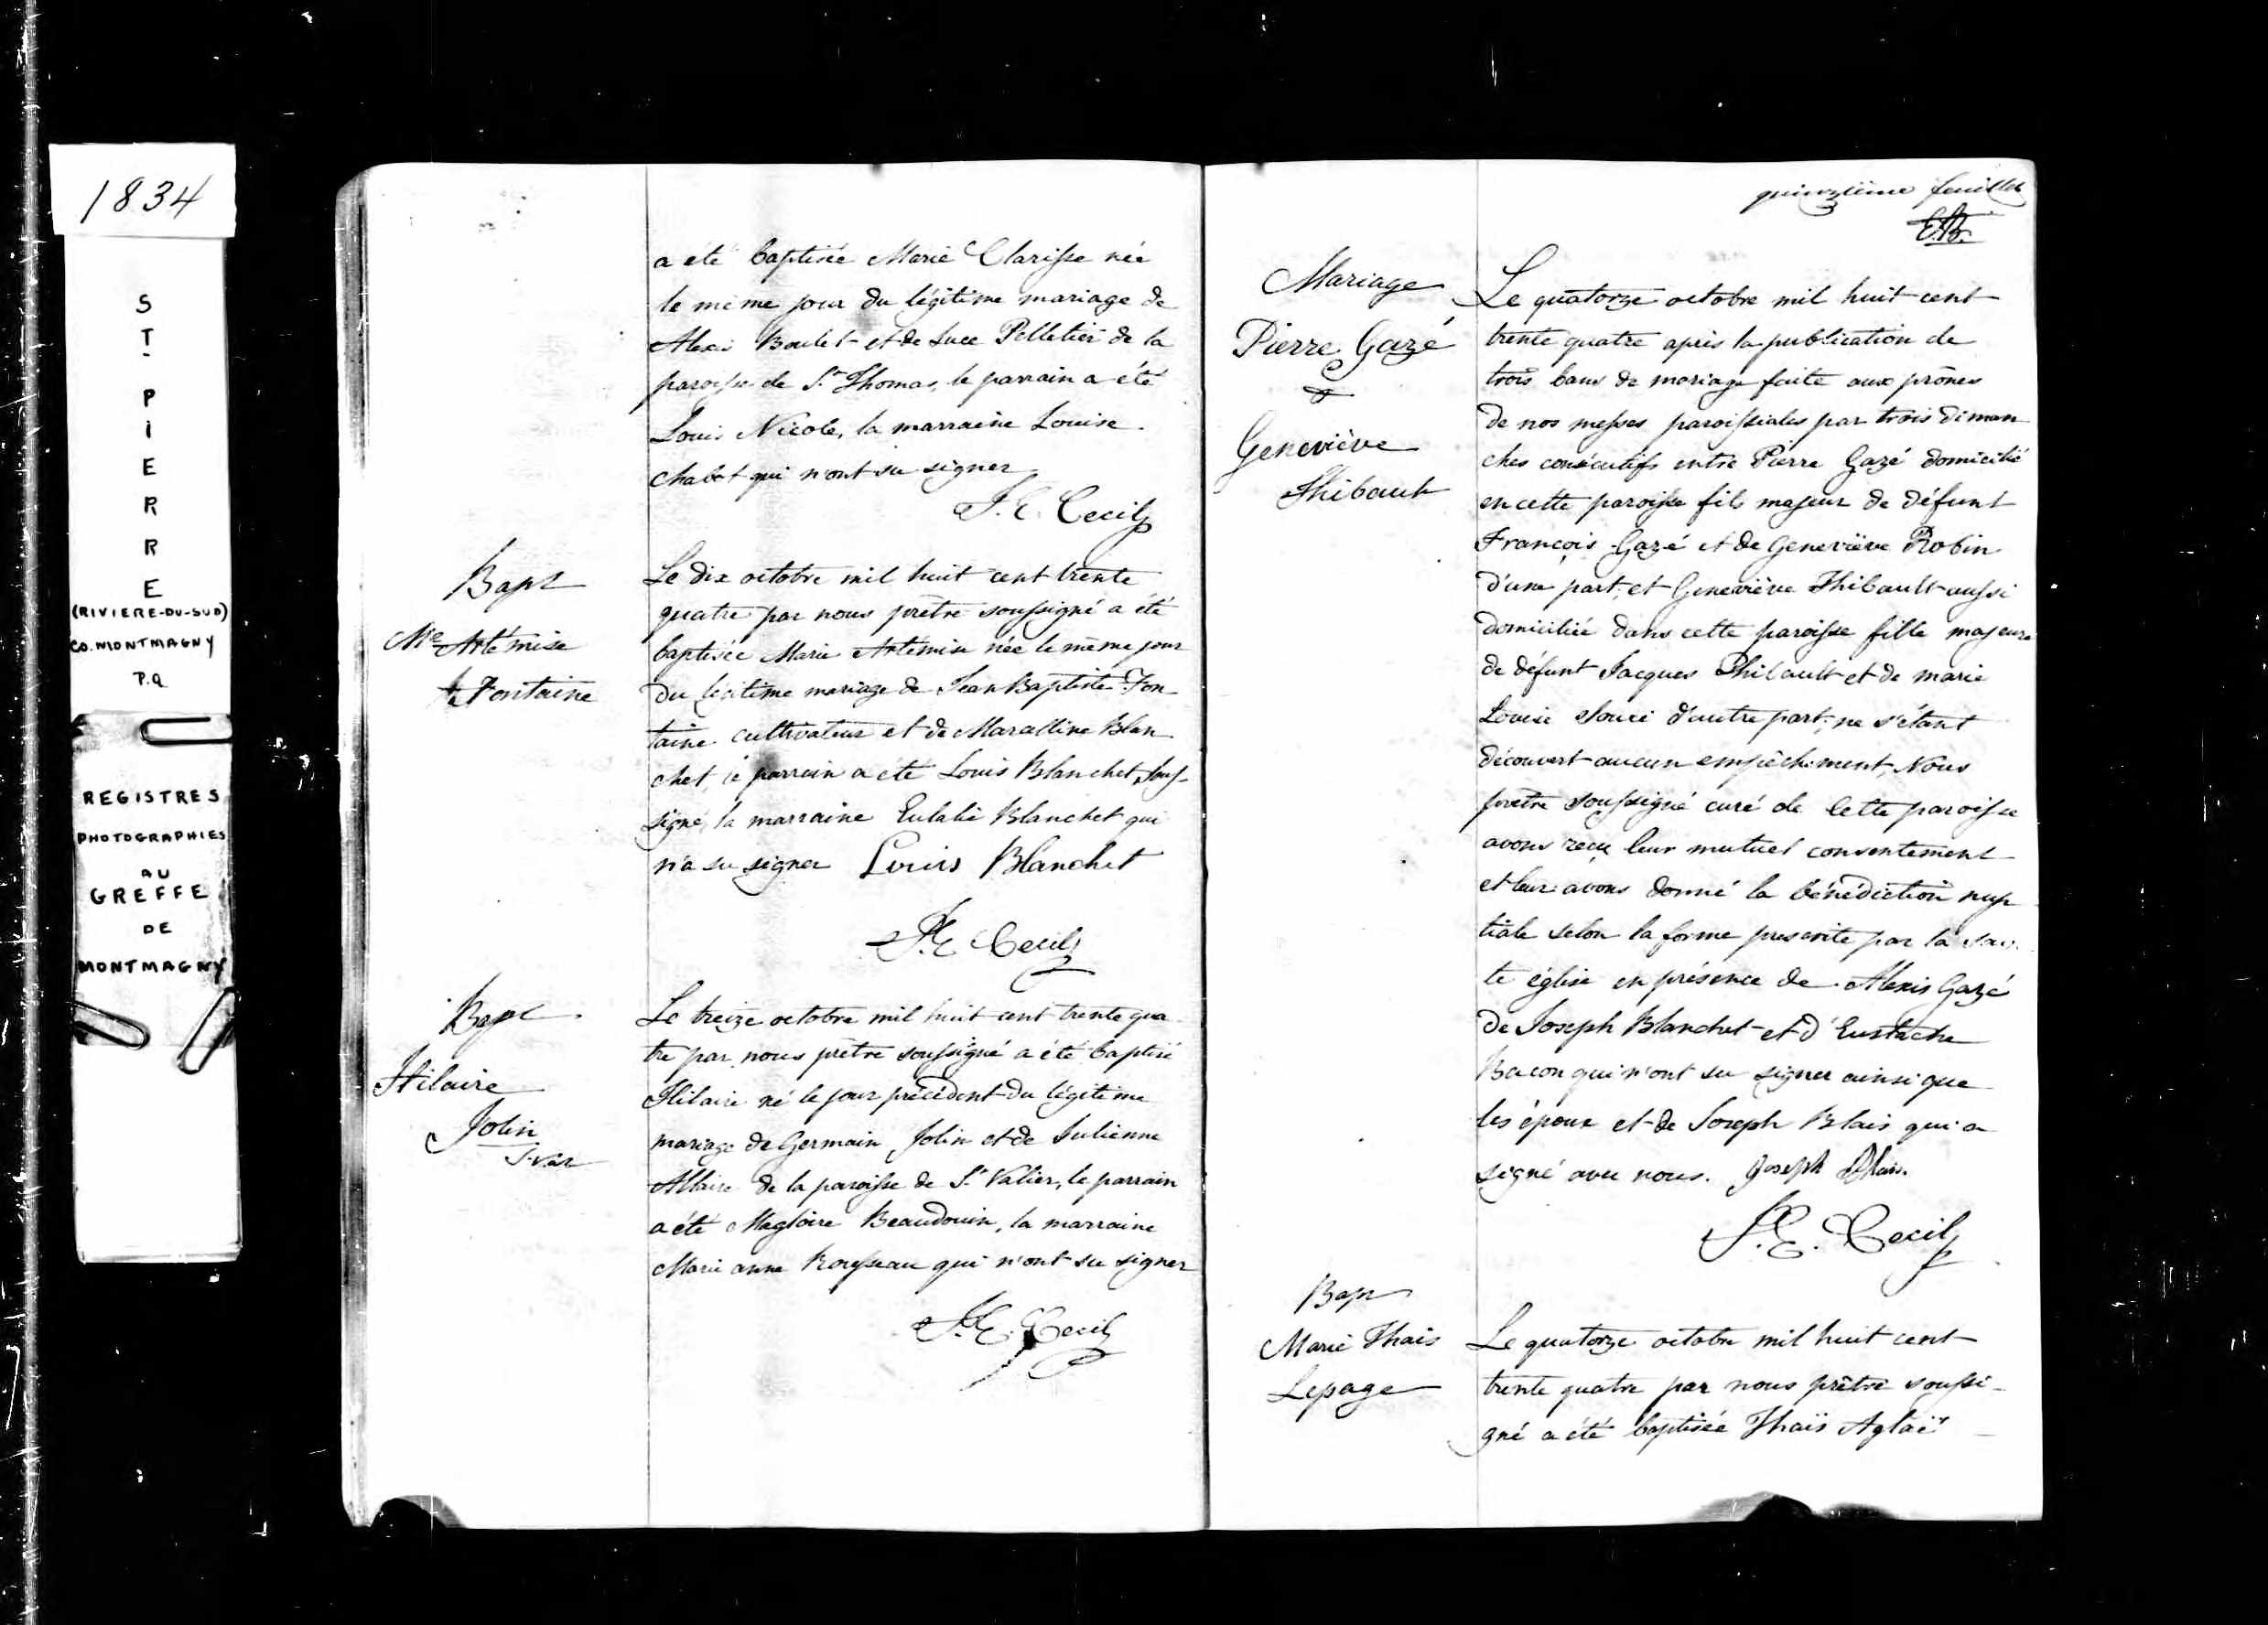 1834
ST PIERRE
(RIVIERE-DU-SUD)
CO. MONTMAGNY
P.Q
REGISTRES
PHOTOGRAPHIES
AU
GREFFE
DE
MONTMAGNY
a été baptisée Marie Clarisse née
le même jour du légitime mariage de
Alexis Boulet et de Luce Pelletier de la
paroisse de St Thomas, le parrain a été
Louis Nicole, la marraine Louise
Chabot qui n'ont su signer
J. E. Cecil
Bapt
Mie Artémise
Fontaine
Le dix octobre mil huit cent trente
quatre par nous prêtre soussigné a été
baptisée Marie Artémise née le même jour
du légitime mariage de Jean Baptiste Fon-
taine cultivateur et de Marcelline Blan
chet, le parrain a été Louis Blanchet, sous-
signé, la marraine Eulalie Blanchet qui
n'a su signer Louis Blanchet
J. E. Cecil
Bapt
Hilaire
Jolin
S. Val
Le treize octobre mil huit cent trente qua
tre par nous prêtre soussigné a été baptisé
Hilaire né le jour précédent du légitime
mariage de Germain Jolin et de Julienne
Allaire de la paroisse de St Valier, le parrain
a été Magloire Beaudouin, la marraine
Marie anne Rousseau qui n'ont su signer
J. E. Cecil
quinzième feuillet
E.B.
Mariage
Pierre Gazé
&
Geneviève
Thibault
Le quatorze octobre mil huit cent
trente quatre après la publication de
trois bans de mariage faite aux prônes
de nos messes paroissiales par trois diman
ches consécutifs entre Pierre Gazé domicilié
en cette paroisse fils majeur de défunt
François Gazé et de Geneviève Robin
d'une part, et Geneviève Thibault aussi
domiciliée dans cette paroisse fille majeure
de défunt Jacques Thibault et de marie
Louise d'autre part; ne s'étant
découvert aucun empêchement, Nous
prêtre soussigné curé de cette paroisse
avons reçu leur mutuel consentement
et leur avons donné la bénédiction nup
tiale selon la forme prescrite par la sain
te église en présence de Alexis Gazé
de Joseph Blanchet et d'Eustache
Bacon qui n'ont su signer ainsi que
les époux et de Joseph Blais qui a
signé avec nous. Joseph Blais.
J. E. Cecil
Bapt
Marie Thaïs
Lepage
Le quatorze octobre mil huit cent
trente quatre par nous prêtre soussi-
gné a été baptisée Thaïs Aglaë